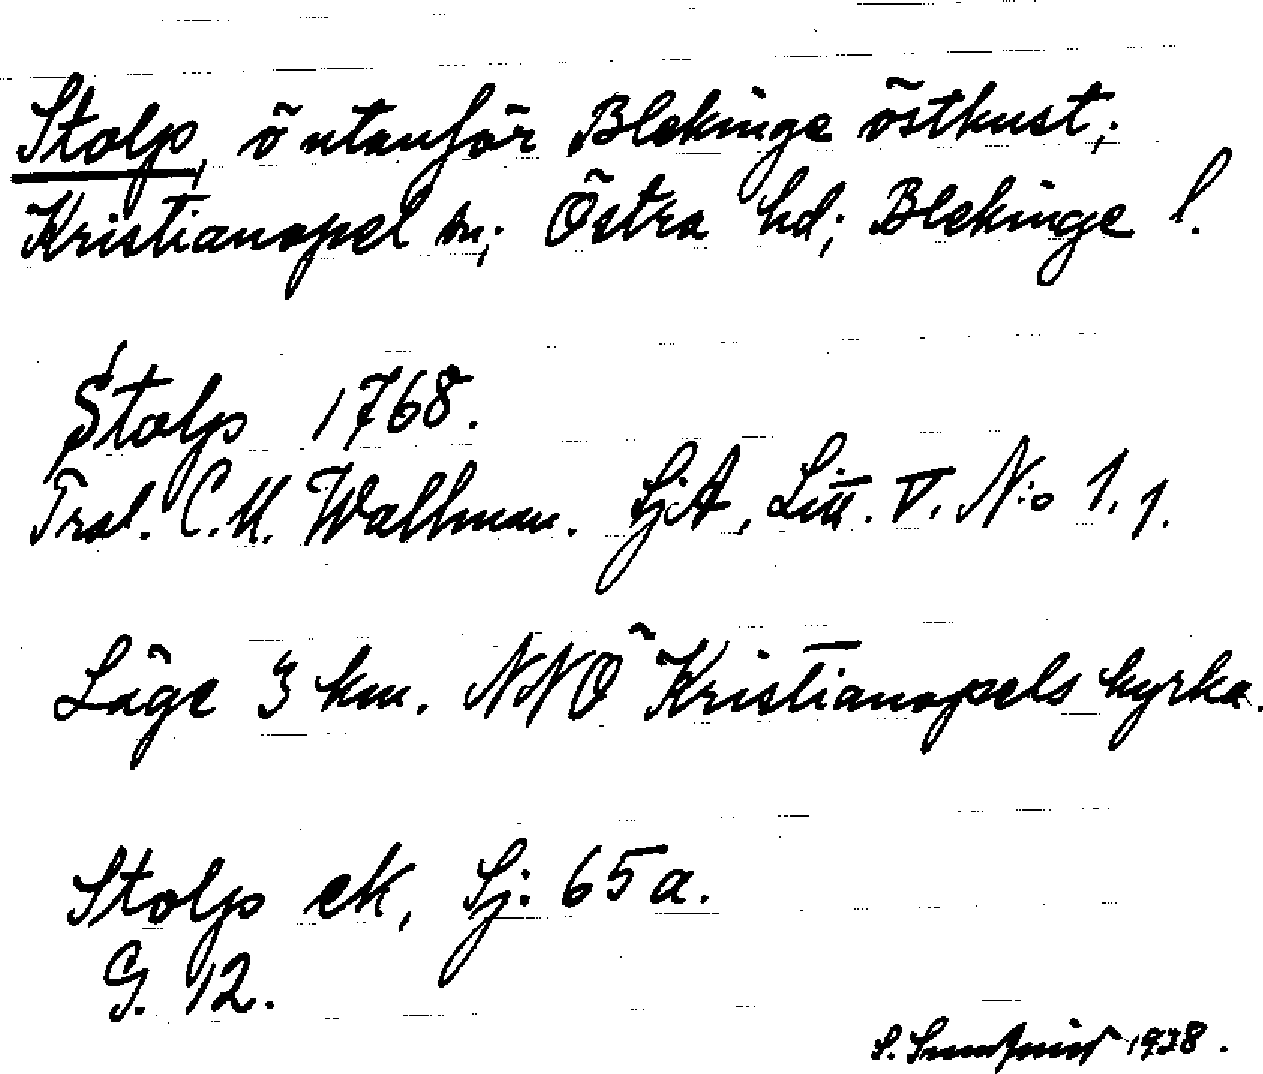 Stolp, ö utanför Blekinge östkust;
Kristianopel sn; Östra hd; Blekinge l.
Stolp 1768.
C.U. Wallman. SjA, Litt. V. N:o 1.1.
Läge 3 km. NNÖ Kristianopels kyrka.
Stolp ek, Sj. 65a.
G. 12.
S. 1938.